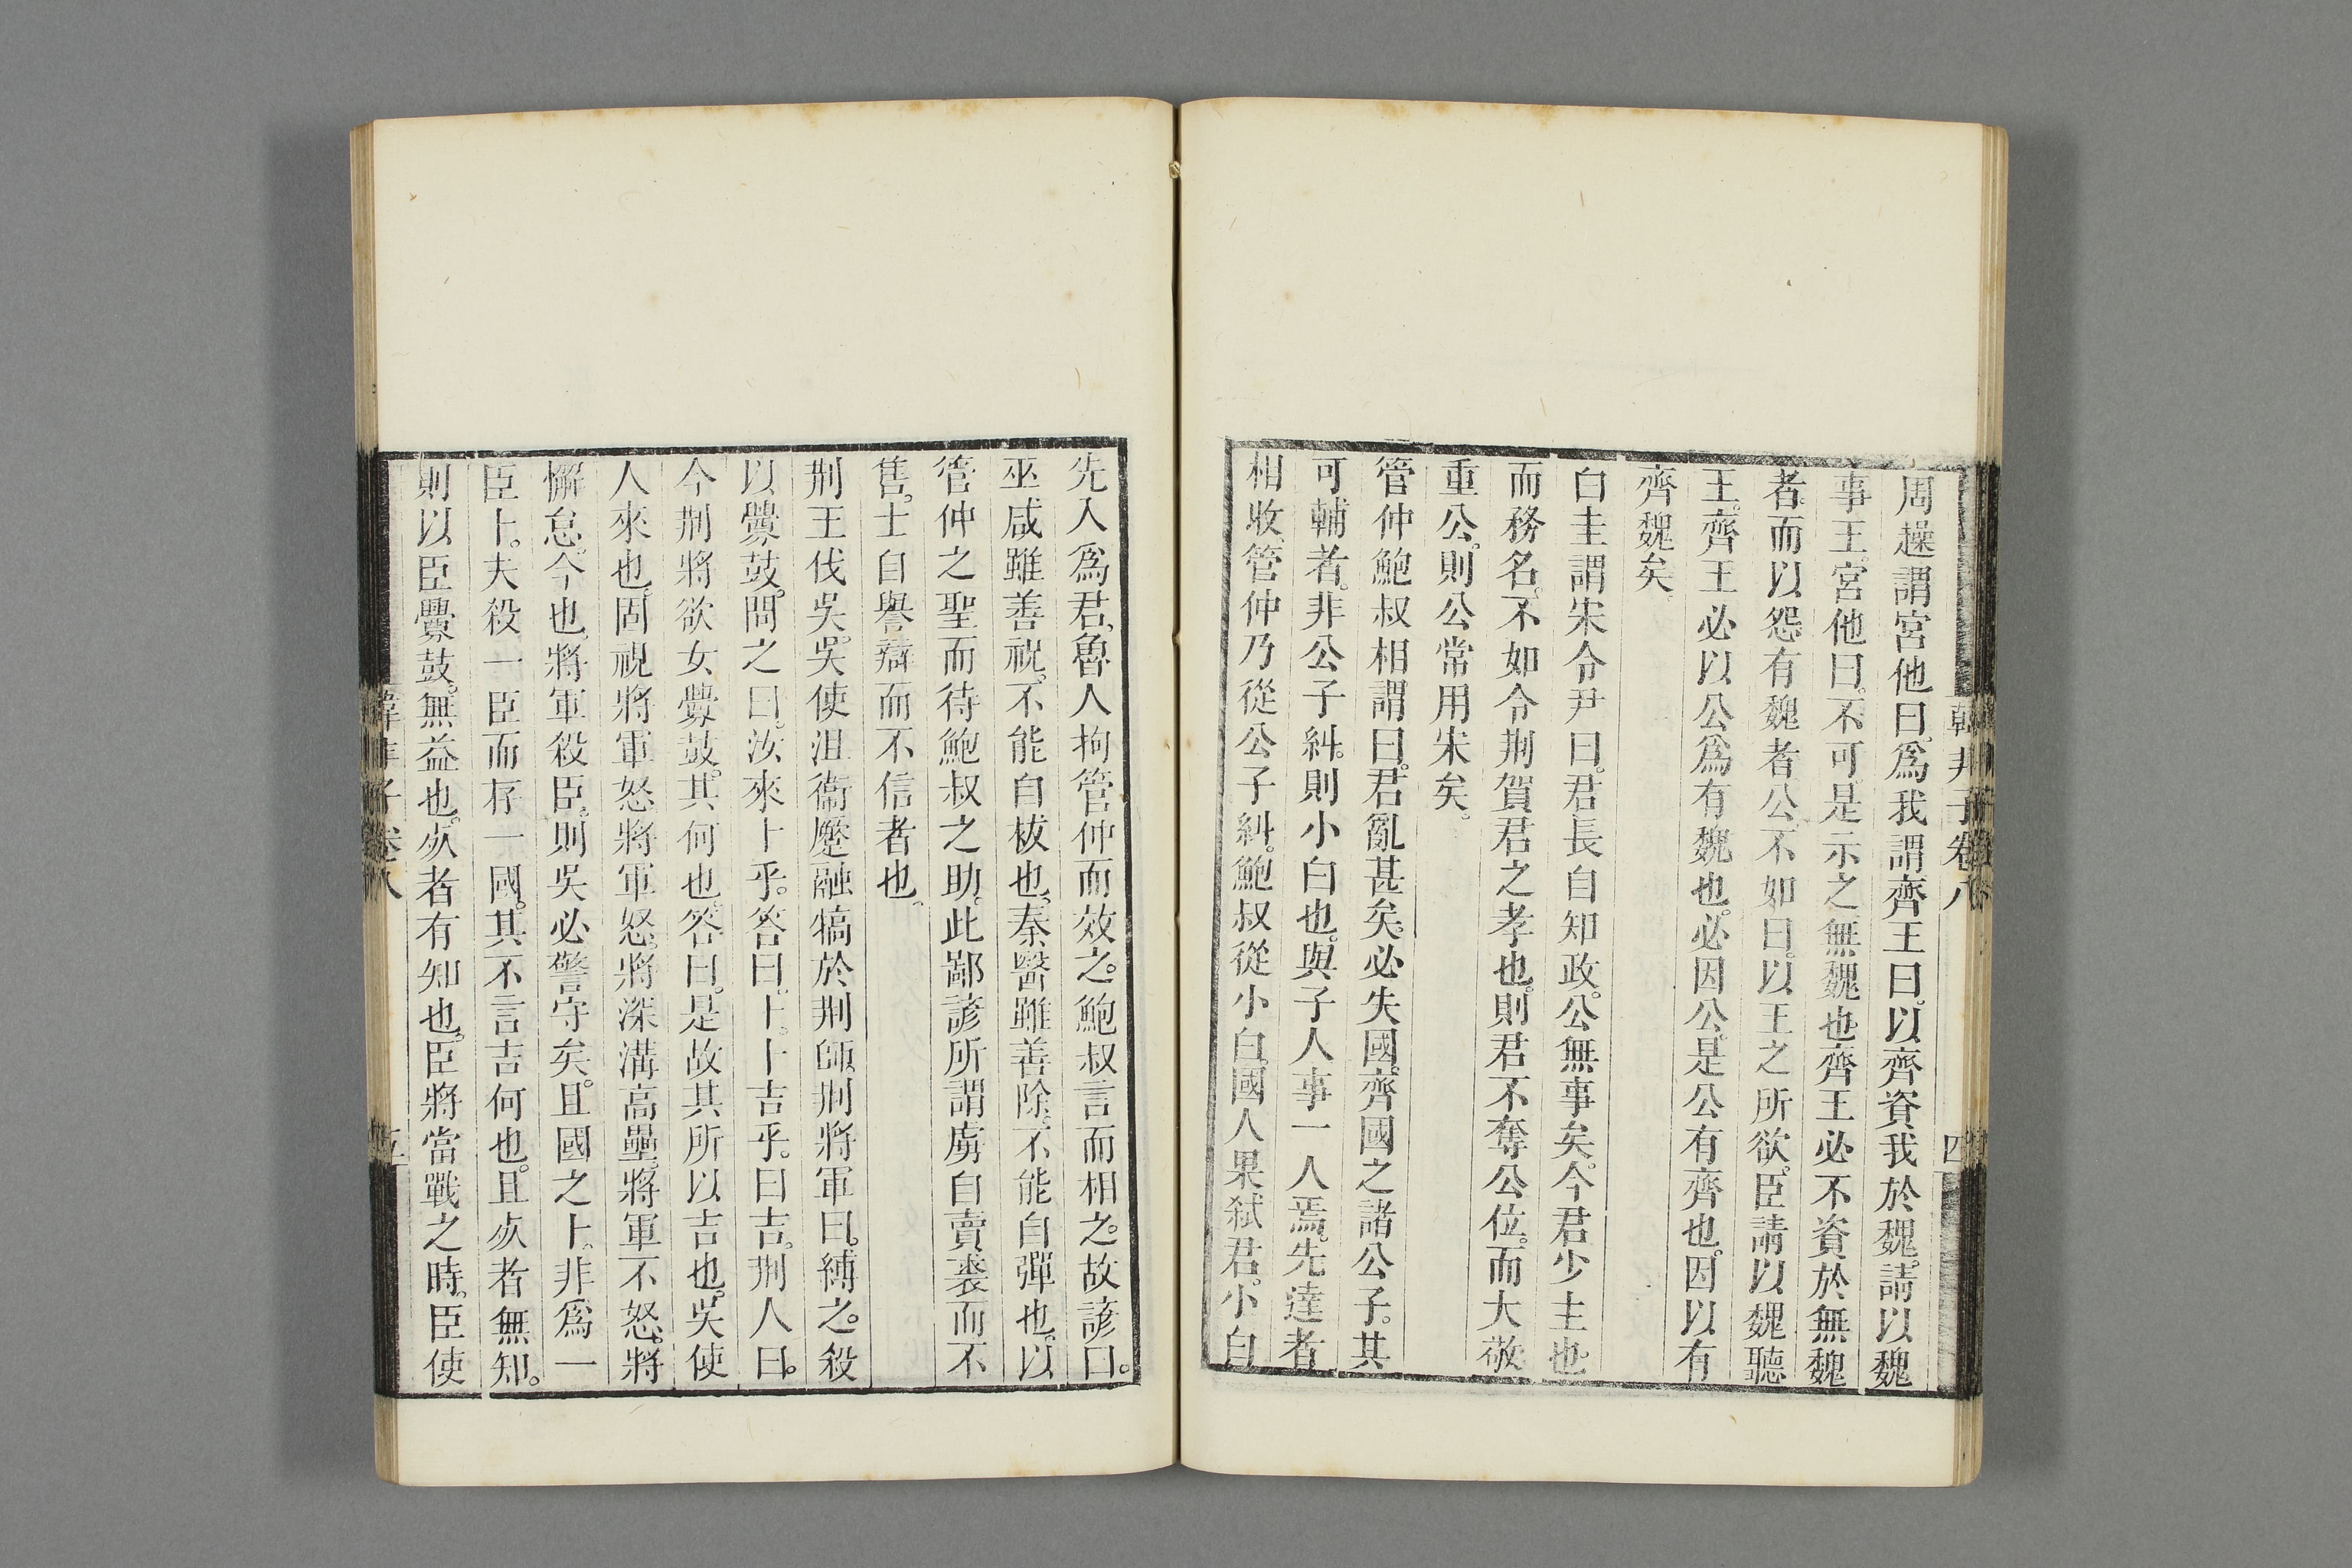 韓非子卷八 四
周趮謂宮他曰。爲我謂齊王曰。以齊資我於魏。請以魏
事王。宮他曰。不可。是示之無魏也。齊王必不資於無魏
者。而以怨有魏者。公不如曰。以王之所欲。臣請以魏聽
王。齊王必以公爲有魏也。必因公。是公有齊也。因以有
齊魏矣。
白圭謂宋令尹曰。君長自知政。公無事矣。今君少主也。
而務名。不如令荆賀君之孝也。則君不奪公位。而大敬
重公。則公常用宋矣。
管仲鮑叔相謂曰。君亂甚矣。必失國。齊國之諸公子。其
可輔者。非公子糾。則小白也。與子人事一人焉。先達者
相收。管仲乃從公子糾。鮑叔從小白。國人果弒君。小白
先入爲君。魯人拘管仲而效之。鮑叔言而相之。故諺曰。
巫咸雖善祝。不能自祓也。秦醫雖善除。不能自彈也。以
管仲之聖而待鮑叔之助。此鄙諺所謂虜自賣裘而不
售。士自譽辯而不信者也。
荆王伐吳。吳使沮衞蹷融犒於荆師。荆將軍曰。縛之。殺
以釁鼓。問之曰。汝來卜乎。答曰。卜。卜吉乎。曰吉。荆人曰。
今荆將欲女釁鼓。其何也。答曰。是故其所以吉也。吳使
人來也。固視將軍怒。將軍怒。將深溝高壘。將軍不怒。將
懈怠。今也。將軍殺臣。則吳必警守矣。且國之卜。非爲一
臣卜。夫殺一臣而存一國。其不言吉何也。且𣦸者無知。
則以臣釁鼓。無益也。𣦸者有知也。臣將當戰之時。臣使
韓非子卷八 五